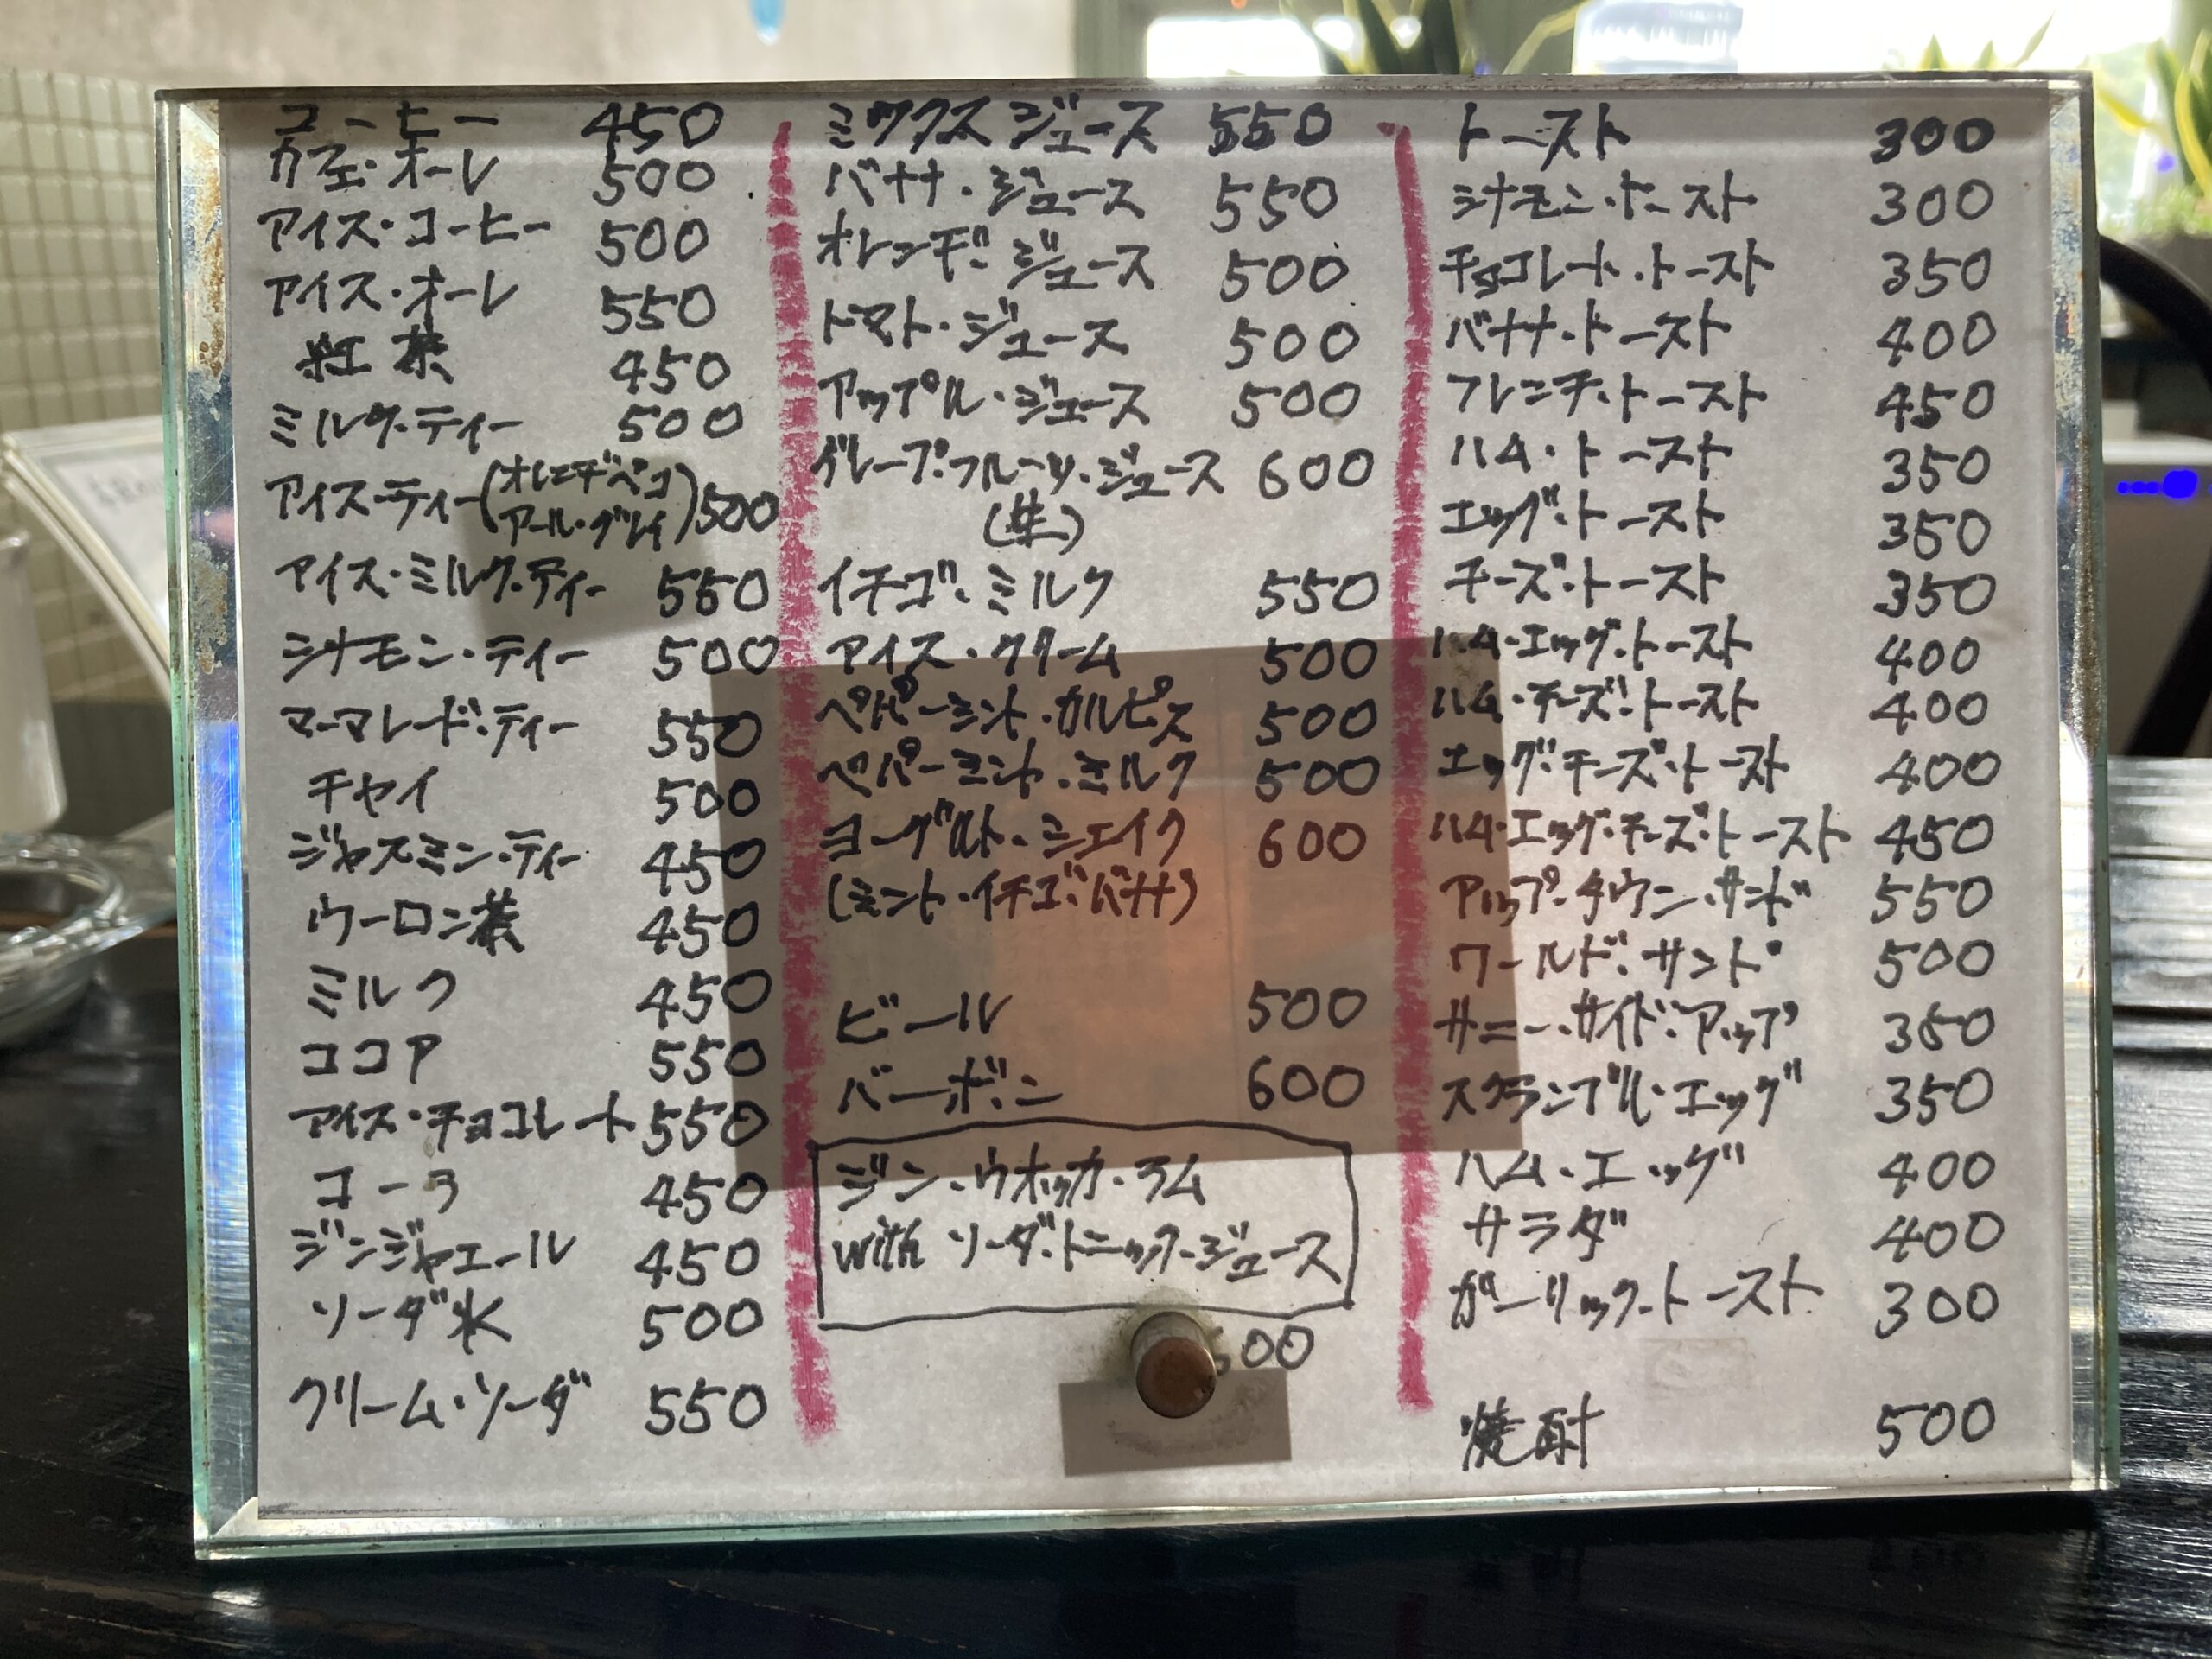 コーヒー 450
カフェ・オーレ 500
アイス・コーヒー 500
アイス・オーレ 550
紅茶 450
ミルク・ティー 500
アイス・ティー(オレンヂペコ アールグレイ) 500
アイス・ミルク・ティー 550
シナモン・ティー 500
マーマレード・ティー 550
チャイ 500
ジャスミン・ティー 450
ウーロン茶 450
ミルク 450
ココア 550
アイス・チョコレート 550
コーラ 450
ジンジャエール 450
ソーダ水 500
クリーム・ソーダ 550
ミックスジュース 550
バナナ・ジュース 550
オレンヂ・ジュース 500
トマト・ジュース 500
アップル・ジュース 500
グレープ・フルーツ・ジュース 600
(生)
イチゴ・ミルク 550
アイス・クリーム 500
ペパーミント・カルピス 500
ペパーミント・ミルク 500
ヨーグルト・シェイク 600
(ミント・イチゴ・バナナ)
ビール 500
バーボン 600
ジン・ウオッカ・ラム
with ソーダ・トニック・ジュース
00
トースト 300
シナモン・トースト 300
チョコレート・トースト 350
バナナ・トースト 400
フレンチ・トースト 450
ハム・トースト 350
エッグ・トースト 350
チーズ・トースト 350
ハム・エッグ・トースト 400
ハム・チーズ・トースト 400
エッグ・チーズ・トースト 400
ハム・エッグ・チーズ・トースト 450
アップ・タウン・サンド 550
ワールド・サンド 500
サニー・サイド・アップ 350
スクランブル・エッグ 350
ハム・エッグ 400
サラダ 400
ガーリック・トースト 300
焼酎 500